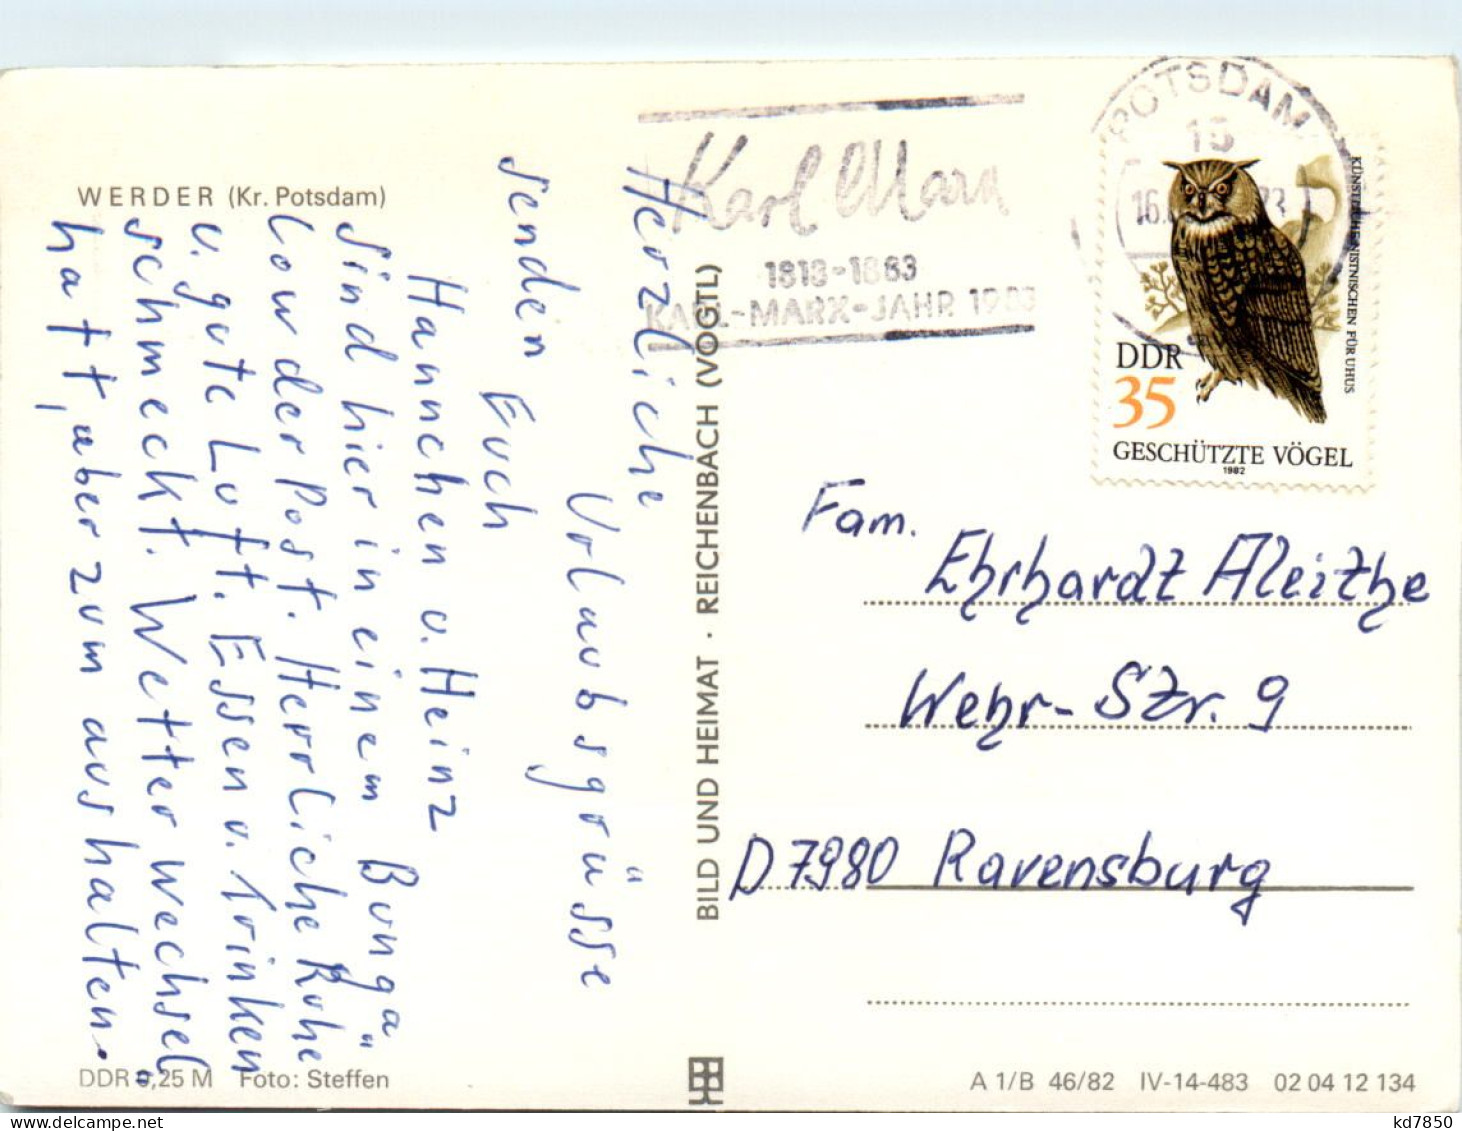 WERDER (Kr. Potsdam)
Herzliche
Urlaubsgrüsse
senden Euch
Hannchen u. Heinz
Sind hier in einem Bunga=
low der Post. Herrliche Ruhe
u. gute Luft. Essen u. Trinken
schmeckt. Wetter wechsel=
haft, aber zum aushalten.
DDR 0,25 M Foto: Steffen
BILD UND HEIMAT · REICHENBACH (VOGTL)
Karl Marx
1818-1883
KARL-MARX-JAHR 1983
POTSDAM
15
16.
DDR
35
GESCHÜTZTE VÖGEL
1982
Fam.
Ehrhardt Aleithe
Wehr-Str. 9
D 7980 Ravensburg
A 1/B 46/82 IV-14-483 02 04 12 134
kd7850